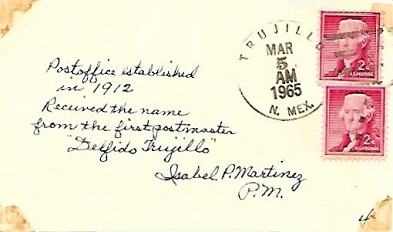 TRUJILLO
MAR
5
AM
1965
N. MEX.
2¢
U.S. POSTAGE
2¢
U.S. POSTAGE
Postoffice established
in 1912
Received the name
from the first postmaster
"Delfido Trujillo"
Isabel P. Martinez
P.M.
4